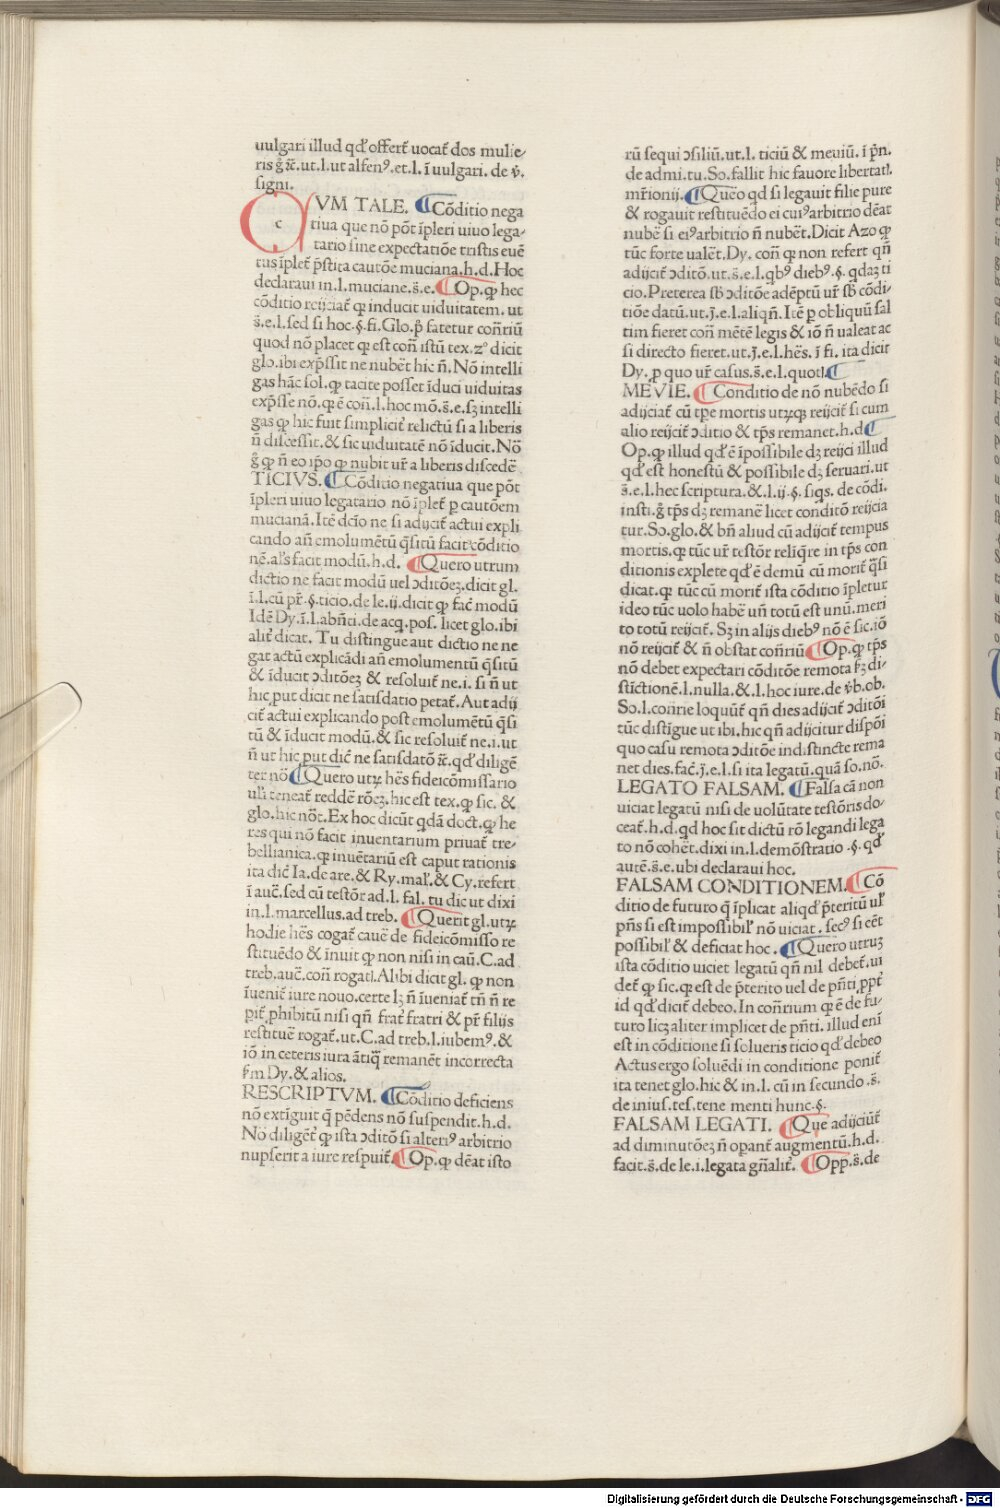 uulgari illud qď offert̄ uocat̄ dos mulie-
ris ḡ ⁊c̄. ut. l. ut alfenꝰ. et. l. ī uulgari. de v̄.
signi.
CVM TALE. ¶ Cōditio nega
tiua que nō pōt īpleri uiuo lega-
tario sine expectatiōe tristis euē
tus īplet̄ p̄stita cautōe muciana. h. d. Hoc
declaraui in. l. muciane. s̄. e. ¶ Op. ꝙ hec
cōditio reijciat̄ ꝙ inducit uiduitatem. ut
s̄. e. l. sed si hoc. §. fi. Glo. p̄ fatetur con̄riū
quod nō placet ꝙ est con̄ istū tex. zº dicit
glo. ibi exp̄ssit ne nubēt hic n̄. Nō intelli
gas hāc sol. ꝙ tacite posset īduci uiduitas
exp̄sse nō. ꝙ ē con̄. l. hoc mō. s̄. e. sꝫ intelli
gas ꝙ hic fuit simplicit̄ relictū si a liberis
n̄ discessit. & sic uiduitatē nō īducit. Nō
ḡ ꝙ n̄ eo ip̄o ꝙ nubit ur̄ a liberis discedē
TICIVS. ¶ Cōditio negatiua que pōt
īpleri uiuo legatario nō īplet̄ p cautōem
mucianā. Itē dc̄io ne si adijcit̄ actui expli
cando an̄ emolumētū q̄sitū facit cōditio
nē. al's facit modū. h. d. ¶ Quero utrum
dictio ne facit modū uel ↄditōeꝫ. dicit gl.
ī. l. cū pr̄. §. ticio. de le. ij. dicit ꝙ fac̄ modū
Idē Dy. ī. l. abn̄ci. de acq. pos. licet glo. ibi
alit̄ dicat. Tu distingue aut dictio ne ne
gat actū explicādi an̄ emolumentū q̄sitū
& īducit ↄditōeꝫ & resoluit̄ ne. i. si n̄ ut
hic put dicit ne satisdatio petat̄. Aut adij
cit̄ actui explicando post emolumētū q̄si
tū & īducit modū. & sic resoluit̄ ne. i. ut
n̄ ut hic put dic̄ ne satisdatō ⁊c̄. qď diligē
ter nō ¶ Quero utꝝ hēs fideicōmissario
ul'i teneat̄ reddē rōeꝫ. hic est tex. ꝙ sic. &
glo. hic nōt̄. Ex hoc dicūt qdā doct. ꝙ he
res qui nō facit inuentarium priuat̄ tre-
bellianica. ꝙ inuētariū est caput rationis
ita dic̄ Ia. de are. & Ry. mal'. & Cy. refert
ī auc̄. sed cū testōr ad. l. fal. tu dic ut dixi
in. l. marcellus. ad treb. ¶ Querit gl. utꝝ
hodie hēs cogat̄ cauē de fideicōmisso re
stituēdo & īnuit ꝙ non nisi in caū. C. ad
treb. auc̄. con̄ rogatl. Alibi dicit gl. ꝙ non
īuenit̄ iure nouo. certe lꝫ n̄ īueniat̄ tn̄ n̄ re
pit̄ phibitū nisi qn̄ frat̄ fratri & pr̄ filijs
restituē rogat̄. ut. C. ad treb. l. iubemꝰ. &
iō in ceteris iura ātiq̄ remanēt incorrecta
s̄m Dy. & alios.
RESCRIPTVM. ¶ Cōditio deficiens
nō extīguit q̄ pēdens nō suspendit. h. d.
Nō diligēt̄ ꝙ ista ↄditō si alteriꝰ arbitrio
nupserit a iure respuit̄. ¶ Op. ꝙ dēat isto
rū sequi ↄsiliū. ut. l. ticiū & meuiū. ī p̄n.
de admi. tu. So. fallit hic fauore libertatl.
mr̄ionij. ¶ Quēo qd si legauit filie pure
& rogauit restituēdo ei cuiꝰ arbitrio dēat
nubē si eiꝰ arbitrio n̄ nubēt. Dicit Azo ꝙ
tūc forte ualēt. Dy. con̄ ꝙ non refert qn̄
adijcit̄ ↄditō. ut. s̄. e. l. qbꝰ diebꝰ. §. qdaꝫ ti
cio. Preterea sb̄ ↄditōe adēptū ur̄ sb̄ cōdi-
tiōe datū. ut. j. e. l. aliqn̄. Itē p obliquū sal
tim fieret con̄ mētē legis & iō n̄ ualeat ac
si directo fieret. ut. j. e. l. hēs. ī fi. ita dicit
Dy. p quo ur̄ casus. s̄. e. l. quotl. ¶
MEVIE. ¶ Conditio de nō nubēdo si
adijciat̄ cū tpe mortis utꝝqꝫ reijcit̄ si cum
alio reijcit̄ ↄditio & tp̄s remanet. h. d ¶
Op. ꝙ illud qď ē īpossibile dꝫ reijci illud
qď est honestū & possibile dꝫ seruari. ut
s̄. e. l. hec scriptura. & l. ij. §. siqs. de cōdi.
insti. ḡ tp̄s dꝫ remanē licet conditō reijcia
tur. So. glo. & bn̄ aliud cū adijcit̄ tempus
mortis. ꝙ tūc ur̄ testōr reliq̄re in tp̄s con
ditionis explete qď ē demū cū morit̄ q̄si
dicat. ꝙ tūc cū morit̄ ista cōditio īpletur
ideo tūc uolo habē un̄ totū est unū. meri
to totū reijcit̄. Sꝫ in alijs diebꝰ nō ē sic. iō
nō reijcit̄ & n̄ obstat con̄riū ¶ Op. ꝙ tp̄s
nō debet expectari cōditōe remota s̄ꝫ di-
stīctionē. l. nulla. & l. hoc iure. de v̄b. ob.
So. l. con̄rie loquūt̄ qn̄ dies adijcit̄ ↄditōi
tūc distīgue ut ibi. hic qn̄ adijcitur dispōi
quo casu remota ↄditōe indistincte rema
net dies. fac̄. j. e. l. si ita legatū. quā so. nō.
LEGATO FALSAM. ¶ Falsa cā non
uiciat legatū nisi de uolūtate testōris do-
ceat̄. h. d. qd hoc sit dictū rō legandi lega
to nō cohēt̄. dixi in. l. demōstratio . §. qď
autē. s̄. e. ubi declaraui hoc.
FALSAM CONDITIONEM. ¶ Cō
ditio de futuro q̄ īplicat aliqď p̄teritū ul'
pn̄s si est impossibil' nō uiciat . secꝰ si eēt
possibil' & deficiat hoc . ¶ Quero utruꝫ
ista cōditio uiciet legatū qn̄ nil debet̄. ui
det̄ ꝙ sic. ꝙ est de p̄terito uel de pn̄ti. ppt̄
id qď dicit̄ debeo. In con̄rium ꝙ ē de fu-
turo licꝫ aliter implicet de pn̄ti. illud enī
est in cōditione si solueris ticio qď debeo
Actus ergo soluēdi in conditione ponit̄
ita tenet glo. hic & in. l. cū in secundo . s̄.
de inius. tes. tene menti hunc. §.
FALSAM LEGATI. ¶ Que adijciūt̄
ad diminutōeꝫ n̄ opant̄ augmentū. h. d.
facit. s̄. de le. i. legata gn̄alit̄. ¶ Opp. s̄. de
Digitalisierung gefördert durch die Deutsche Forschungsgemeinschaft - DFG